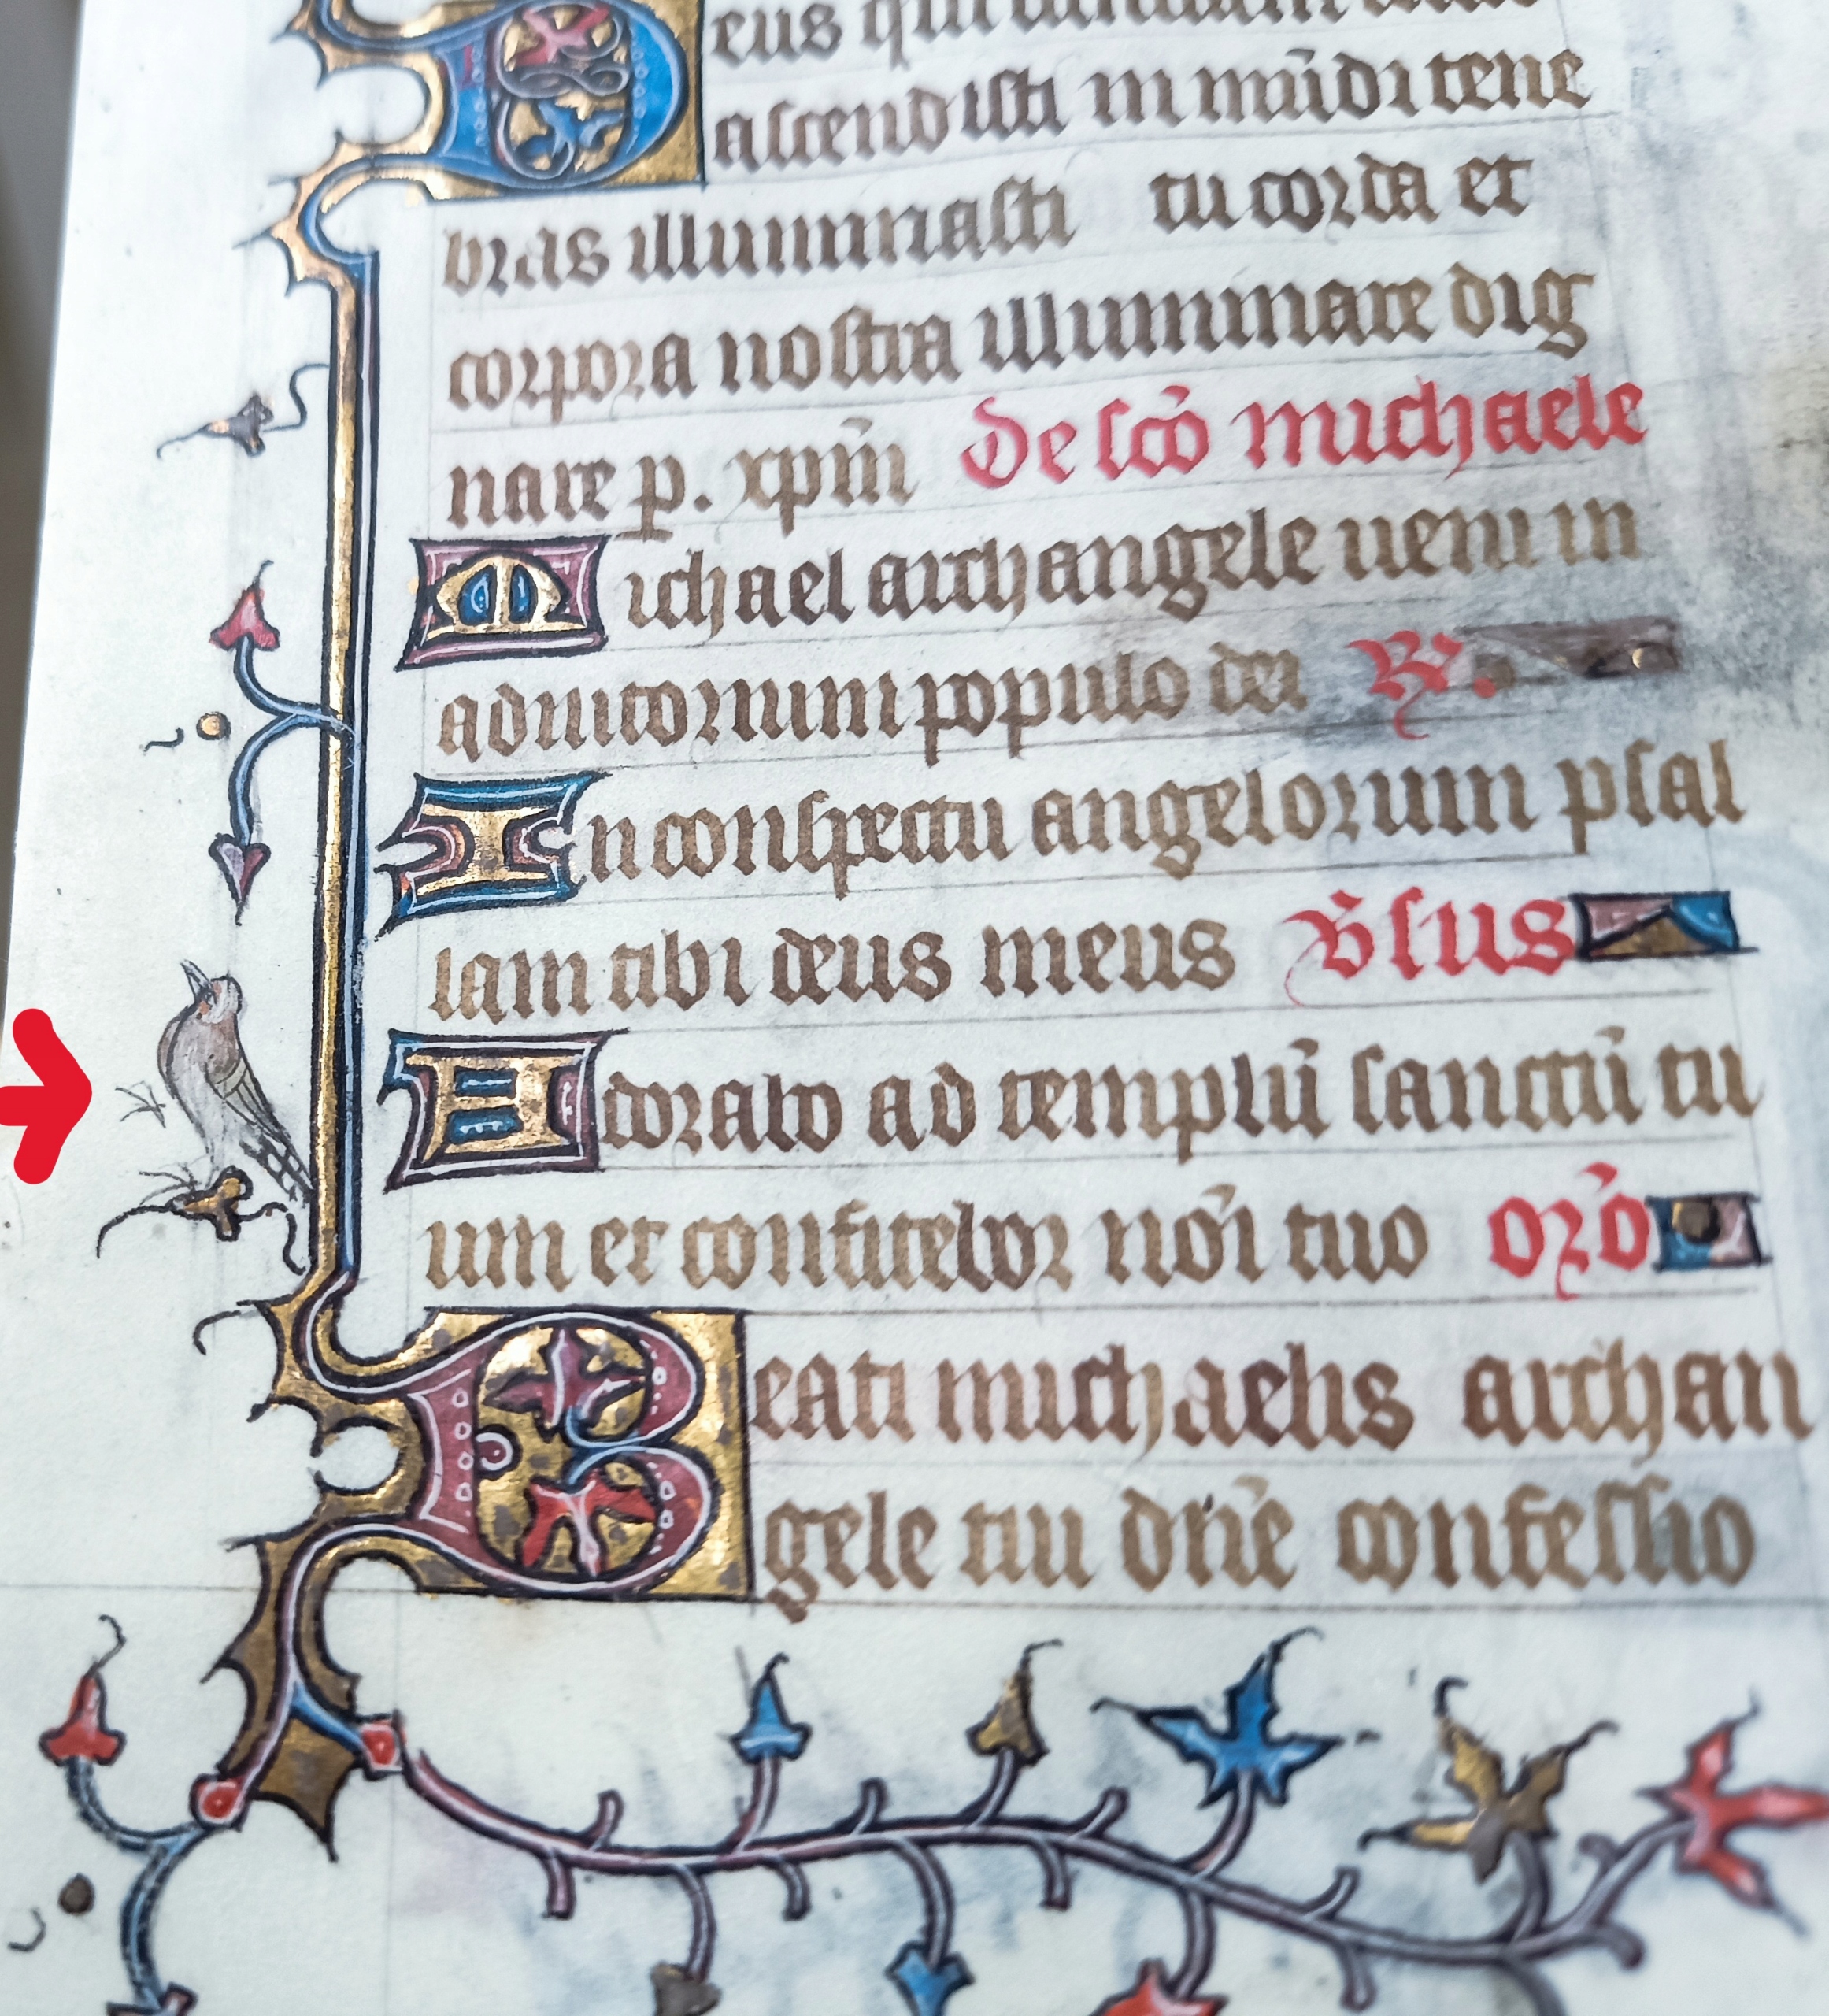 Deus qui
ascendisti in mūdi tene
bras illuminasti tu corda et
corpora nostra illuminare dig
nare p. xpm̄ De sc̄o michaele
Michael archangele ueni in
adiutorium populo dei R̸.
In conspectu angelorum psal
lam tibi deus meus V̸sus
Adorabo ad templū sanctū tu
um et confitebor nōi tuo Orō
Beati michaelis archan
gele tui dn̄e confessio